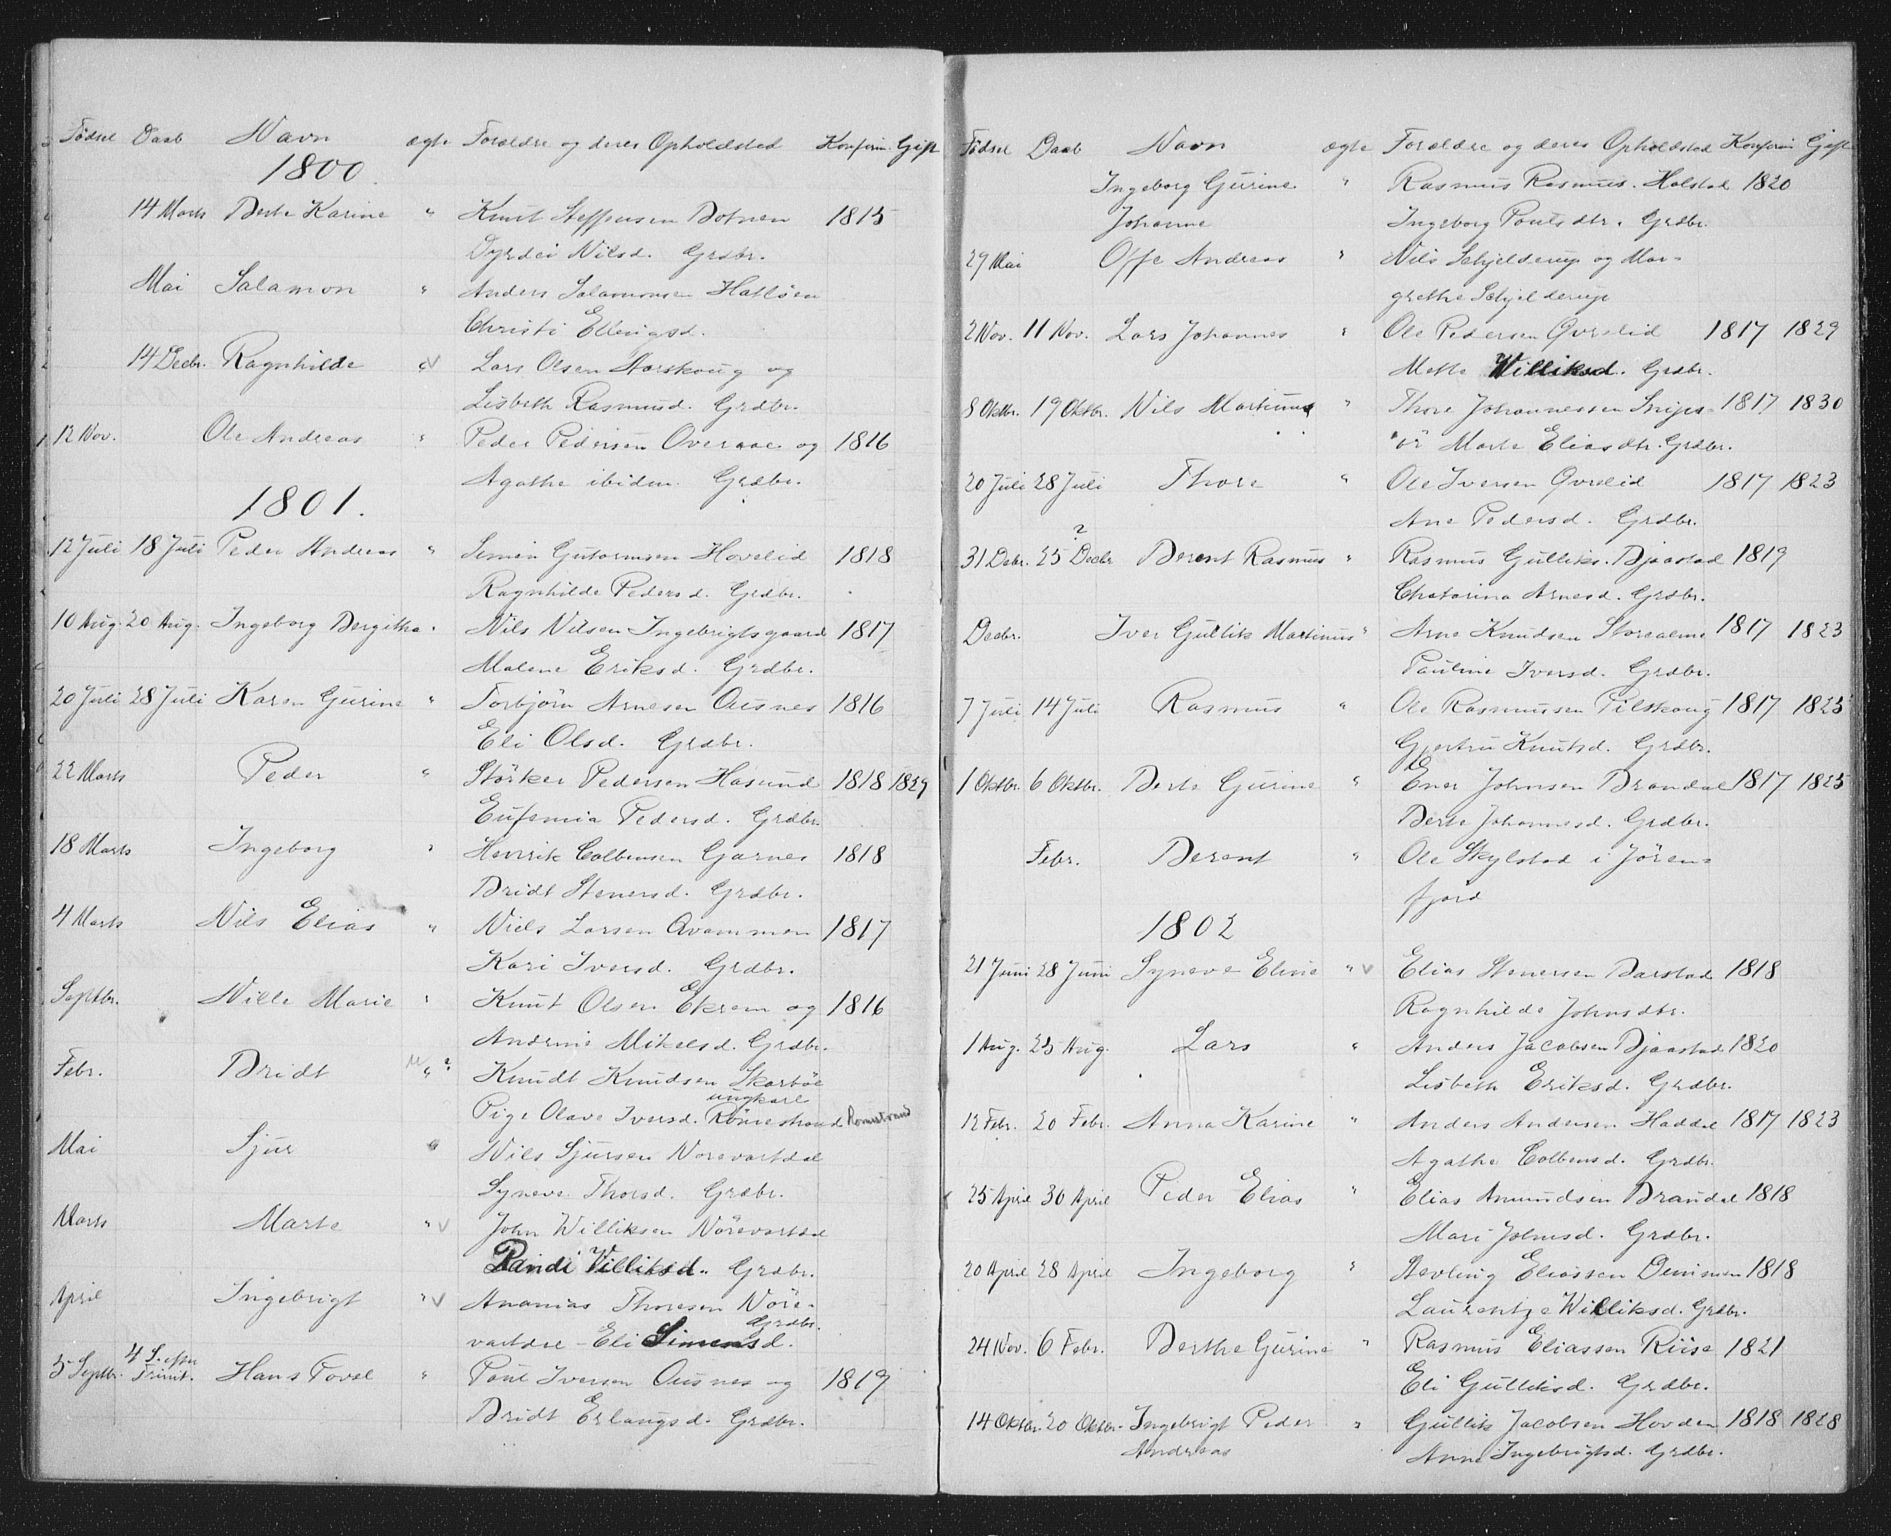 Fødsel Daab Navn ægte Forældre og deres Opholdsted Konfirm. Gift
1800.
14 Marts Berte Karine " Knut Steffensen Botnen 1815
Dyrdei Nilsd. Grdbr.
Mai Salamon " Anders Salamonsen Hatløen
Christi Ellingsd.
14 Decbr. Ragnhilde " v Lars Olsen Aarskoug og
Lisbeth Rasmusd. Grdbr.
12 Nov. Ole Andreas " Peder Pedersen Overaae og 1816
Agathe ibidem. Grdbr.
1801.
12 Juli 18 Juli Peder Andreas " Simen Gutormsen Hovelid 1818
Ragnhilde Pedersd. Grdbr.
10 Aug. 20 Aug. Ingeborg Bergitha " Nils Nilsen Ingebrigtsgaard 1817
Malene Eriksd. Grdbr.
20 Juli 28 Juli Karen Gurine " Torbjörn Arnesen Ousnes 1816
Eli Olsd. Grdbr.
22 Marts Peder " Störker Pedersen Hasund 1818 1829
Eufemia Pedersd. Grdbr.
18 Marts Ingeborg " Henrik Colbensen Garnes 1818
Bridt Stenersd. Grdbr.
4 Marts Nils Elias " Niels Larsen Qvammen 1817
Kari Iversd. Grdbr.
Septbr. Nille Marie " Knut Olsen Ekrem og 1816
Andrine Mikelsd. Grdbr.
Febr. Bridt " ? Knudt Knudsen Skarböe
ungkarl
Pige Olave Iversd. Rönnestrand Romestrand
Mai Sjur " Nils Sjursen Norevartdal
Syneve Thorsd. Grdbr.
Marts Marte " v John Williksen Nörevartdal
Randi Williksd. Grdbr.
April Ingebrigt " v Ananias Thoresen Nöre-
vartdal - Eli Simensd. Grdbr.
5 Septbr. 4 S. efter Trinit. Hans Tovel " Poul Iversen Ousnes og 1819
Bridt Erlangsd. Grdbr.
Fødsel Daab Navn ægte Forældre og deres Opholdsted Konfirm Gift
Ingeborg Gurine " Rasmus Rasmus. Holstad 1820
Johanne Ingeborg Poulsdtr. Grdbr.
29 Mai Offe Andreas " Nils Schjelderup og Mar-
grethe Schjelderup
2 Nov. 11 Nov. Lars Johannes " Ole Pedersen Qvrelid 1817 1829
Mette Williksd. Grdbr.
8 Oktbr. 19 Oktbr. Nils Martinus " Thore Johannessen Snips- 1817 1830
ör Marte Eliasdtr. Grdbr.
20 Juli 28 Juli Thore " Ole Iversen Qvrelid 1817 1823
Ane Pedersd. Grdbr.
31 Debr. 25 ? Decbr Berent Rasmus " Rasmus Gulliks. Bjaastad 1819
Chatarina Arnesd. Grdbr.
Decbr. Iver Gullik Martinus " Arne Knudsen Storealme 1817 1823
Pauline Iversd. Grdbr.
7 Juli 14 Juli Rasmus " Ole Rasmussen Pilskoug 1817 1825
Gjertru Knutsd. Grdbr.
1 Oktbr. 6 Oktbr. Berte Gurine " Ener Johnsen Brandal 1817 1825
Berte Johannesd. Grdbr.
Febr. Berent " Ole Skylstad i Jören-
fjord
1802
21 Juni 28 Juni Syneve Eline " v Elias Stenersen Barstad 1818
Ragnhilde Johnsdtr.
1 Aug. 25 Aug. Lars " Anders Jacobsen Bjaastad 1820
Lisbeth Eriksd. Grdbr.
12 Febr. 20 Febr. Anna Karine " Anders Andersen Haddal 1817 1823
Agathe Colbensd. Grdbr.
25 April 30 April Peder Elias " Elias Amundsen Brandal 1818
Mari Johnsd. Grdbr.
20 April 28 April Ingeborg " Aevling Eliassen Dimmen 1818
Laurentze Williksd. Grdbr.
24 Nov. 6 Febr. Berthe Gurine " Rasmus Eliassen Riise 1821
Eli Gulliksd. Grdbr.
14 Oktbr. 20 Oktbr. Ingebrigt Peder " Gullik Jacobsen Hovden 1818 1828
Andreas Anne Ingebrigtsd. Grdbr.